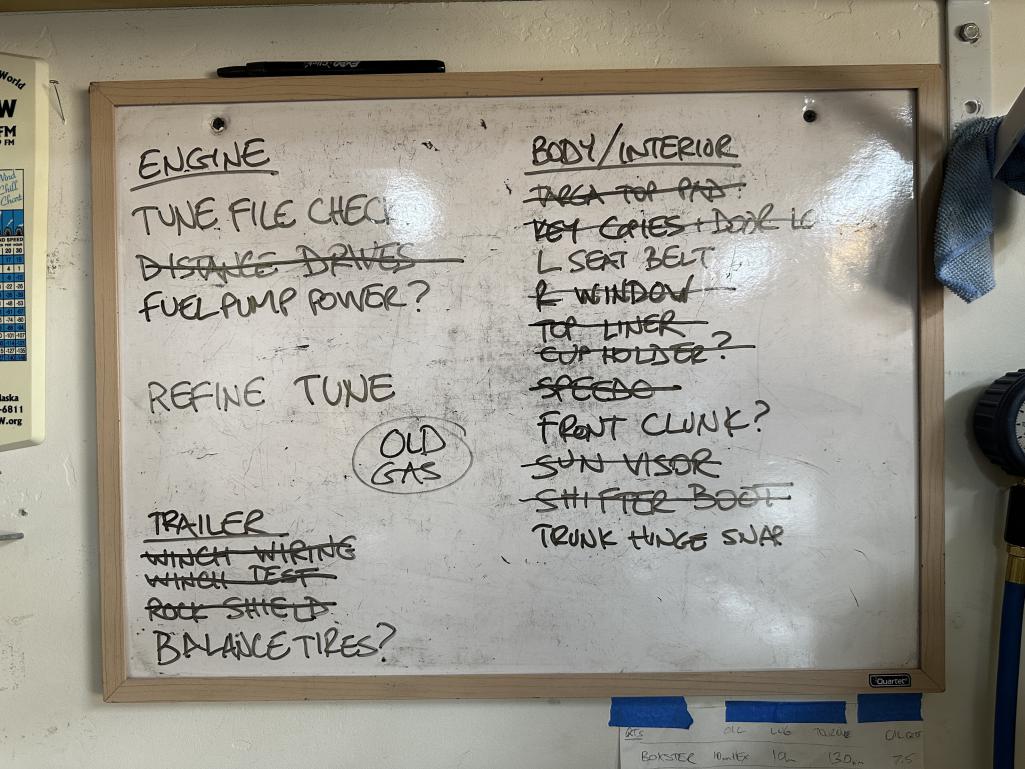 World
W
FM
FM
Wind
Chill
Chart
WIND SPEED
20 30
laska
-6811
W.org
ENGINE
TUNE FILE CHEC
DISTANCE DRIVES
FUEL PUMP POWER?
REFINE TUNE
OLD
GAS
TRAILER
WINCH WIRING
WINCH TEST
ROCK SHIELD
BALANCE TIRES?
BODY/INTERIOR
TARGA TOP PAD
KEY COPIES + DOOR LO
L SEAT BELT
R WINDOW
TOP LINER
CUP HOLDER?
SPEEDO
FRONT CLUNK?
SUN VISOR
SHIFTER BOOT
TRUNK HINGE SNAP
Quartet
OIL LUG TORQUE
BOXSTER 10mm HEX 19m 130nm 7.5